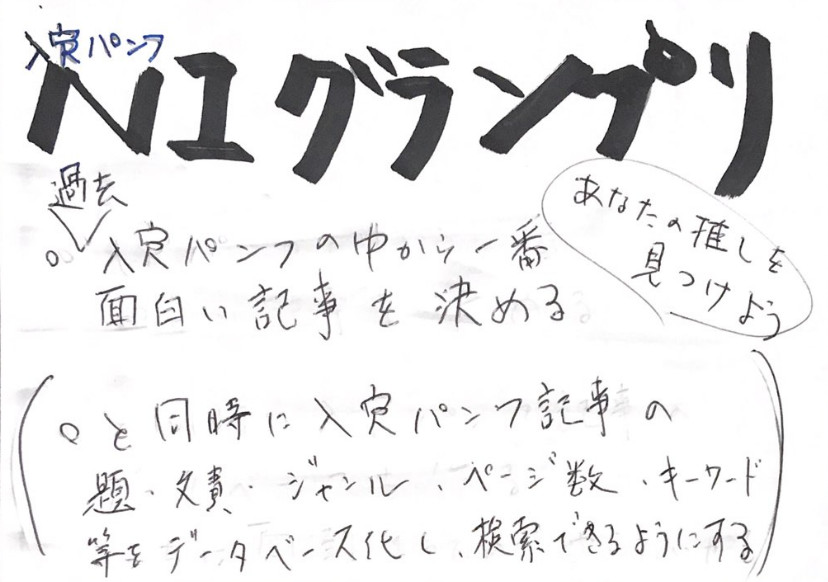 入寮パンフ
N1グランプリ
過去
○ 入寮パンフの中から一番
面白い記事を決める
あなたの推しを
見つけよう
○ と同時に入寮パンフ記事の
題・文責・ジャンル、ページ数、キーワード
等をデータベース化し、検索できるようにする